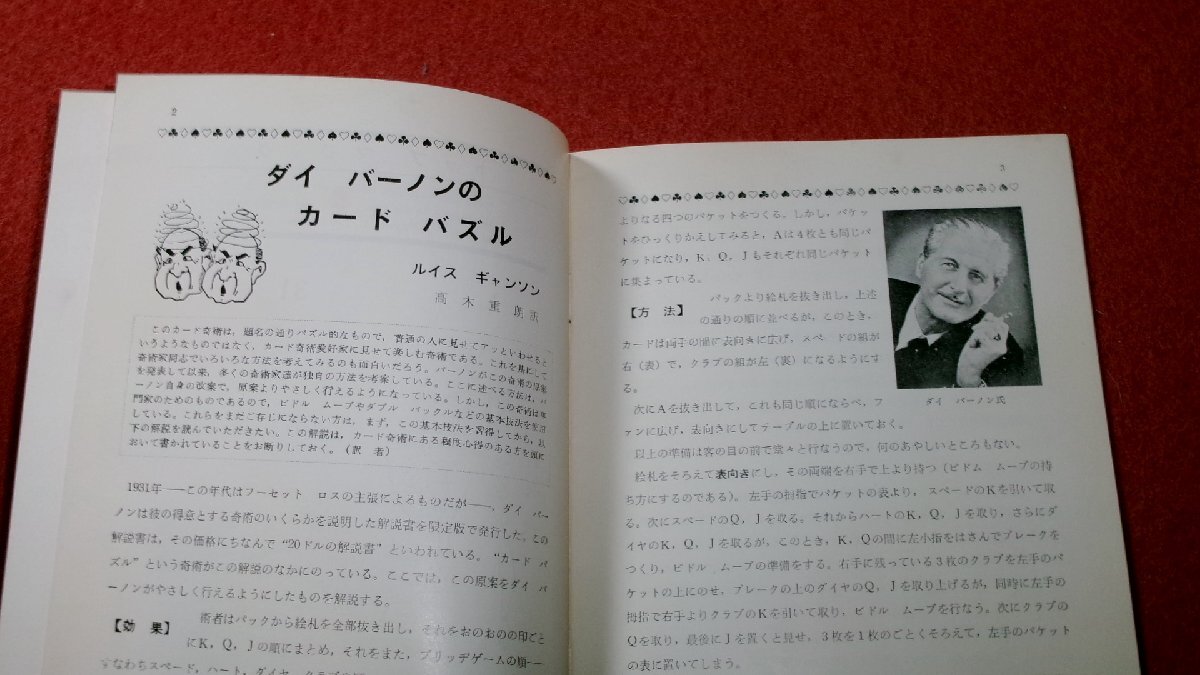 2
ダイ バーノンの
カード パズル
ルイス ギャンソン
高木重朗訳
このカード奇術は，題名の通りパズル的なもので，普通の人に見せてアッといわせると
いうようなものではなく，カード奇術愛好家に見せて楽しむ奇術である。これを基にして
奇術家同志でいろいろな方法を考えてみるのも面白いだろう。バーノンがこの奇術の原案
を発表して以来，多くの奇術家達が独自の方法を考案している。ここに述べる方法は，バ
ーノン自身の改案で，原案よりやさしく行えるようになっている。しかし，この奇術は専
門家のためのものであるので，ビドル ムーブやダブル バックルなどの基本技法を使用
している。これらをまだご存じにならない方は，まず，この基本技法を習得してから，以
下の解説を読んでいただきたい。この解説は，カード奇術にある程度心得のある方を頭に
おいて書かれていることをお断りしておく。（訳 者）
1931年――この年代はフーセット ロスの主張によるものだが――，ダイ バー
ノンは彼の得意とする奇術のいくらかを説明した解説書を限定版で発行した。この
解説書は，その価格にちなんで“20ドルの解説書”といわれている。“カード パ
ズル”という奇術がこの解説のなかにのっている。ここでは，この原案をダイ バ
ーノンがやさしく行えるようにしたものを解説する。
【効 果】 術者はパックから絵札を全部抜き出し，それをおのおのの印ごと
にK，Q，Jの順にまとめ，それをまた，ブリッヂゲームの順――
すなわちスペード，ハート，ダイヤ，クラブの順
3
よりなる四つのパケットをつくる。しかし，パケッ
トをひっくりかえしてみると，Aは4枚とも同じパ
ケットになり，K，Q，Jもそれぞれ同じパケット
に集まっている。
【方 法】 パックより絵札を抜き出し，上述
の通りの順に並べるが，このとき，
カードは両手の間に表向きに広げ，スペードの組が
右（表）で，クラブの組が左（裏）になるようにす
る。
ダイ バーノン氏
次にAを抜き出して，これも同じ順にならべ，フ
ァンに広げ，表向きにしてテーブルの上に置いておく。
以上の準備は客の目の前で堂々と行なうので，何のあやしいところもない。
絵札をそろえて表向きにし，その両端を右手で上より持つ（ビドム ムーブの持
ち方にするのである）。左手の拇指でパケットの表より，スペードのKを引いて取
る。次にスペードのQ，Jを取る。それからハートのK，Q，Jを取り，さらにダ
イヤのK，Q，Jを取るが，このとき，K，Qの間に左小指をはさんでブレークを
つくり，ビドル ムーブの準備をする。右手に残っている3枚のクラブを左手のパ
ケットの上にのせ，ブレークの上のダイヤのQ，Jを取り上げるが，同時に左手の
拇指で右手よりクラブのKを引いて取り，ビドル ムーブを行なう。次にクラブの
Qを取り，最後にJを置くと見せ，3枚を1枚のごとくそろえて，左手のパケット
の表に置いてしまう。